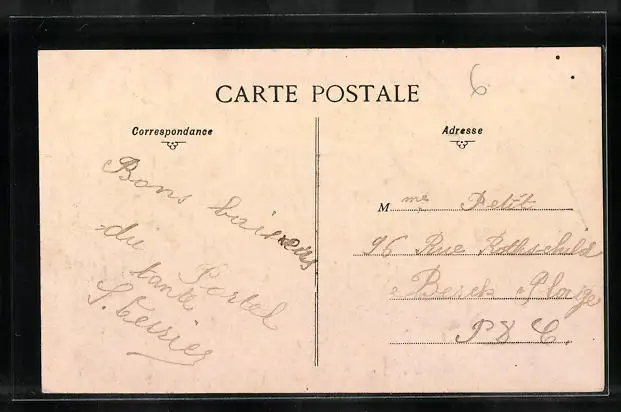 6
CARTE POSTALE
Correspondance
Adresse
Bons baisers
du Portel
tante
M me Petit
96 Rue Rothschild
Berck Plage
P D C.